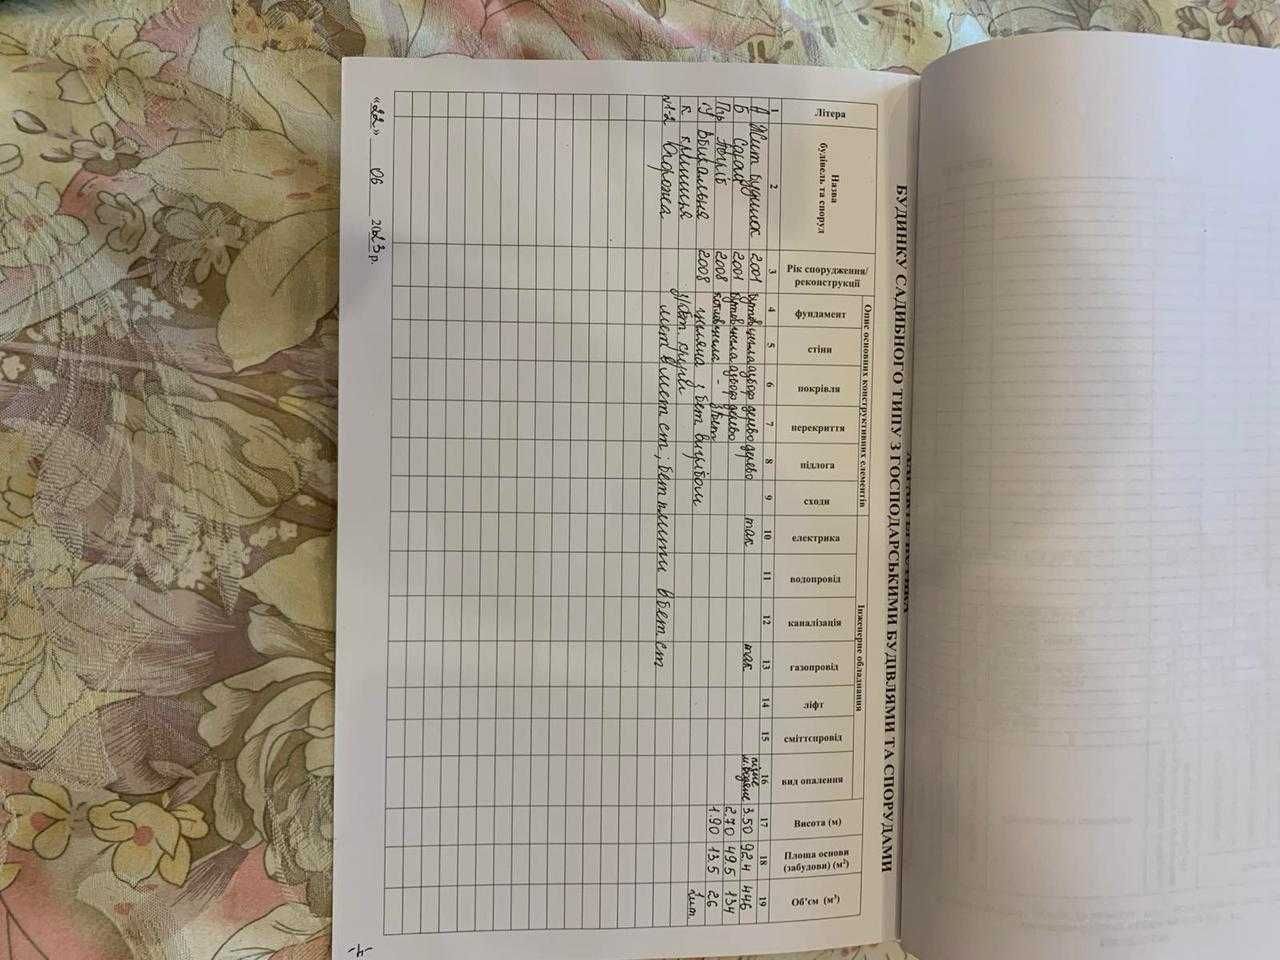 ХАРАКТЕРИСТИКА
БУДИНКУ САДИБНОГО ТИПУ З ГОСПОДАРСЬКИМИ БУДІВЛЯМИ ТА СПОРУДАМИ
Літера
Назва
будівель та споруд
Рік спорудження/
реконструкції
Опис основних конструктивних елементів
фундамент
стіни
покрівля
перекриття
підлога
сходи
Інженерне обладнання
електрика
водопровід
каналізація
газопровід
ліфт
сміттєпровід
вид опалення
Висота (м)
Площа основи
(забудови) (м²)
Об'єм (м³)
1 2 3 4 5 6 7 8 9 10 11 12 13 14 15 16 17 18 19
А Жит будинок 2001 бутов цегла азбоф дерево дерево так так 3.50 92.4 446
Б Сарай 2001 бутов цегла азбоф дерево 2.70 49.5 134
Пг Погріб 2008 - з/бет 1.90 13.5 26
У Вбиральня 2008 цегляна з бет вигрібом 1шт
К криниця з/бет кругі
№1-2 Огорожа мет в мет ст; бет плити в бет ст
«22» 06 2023 р.
-4-